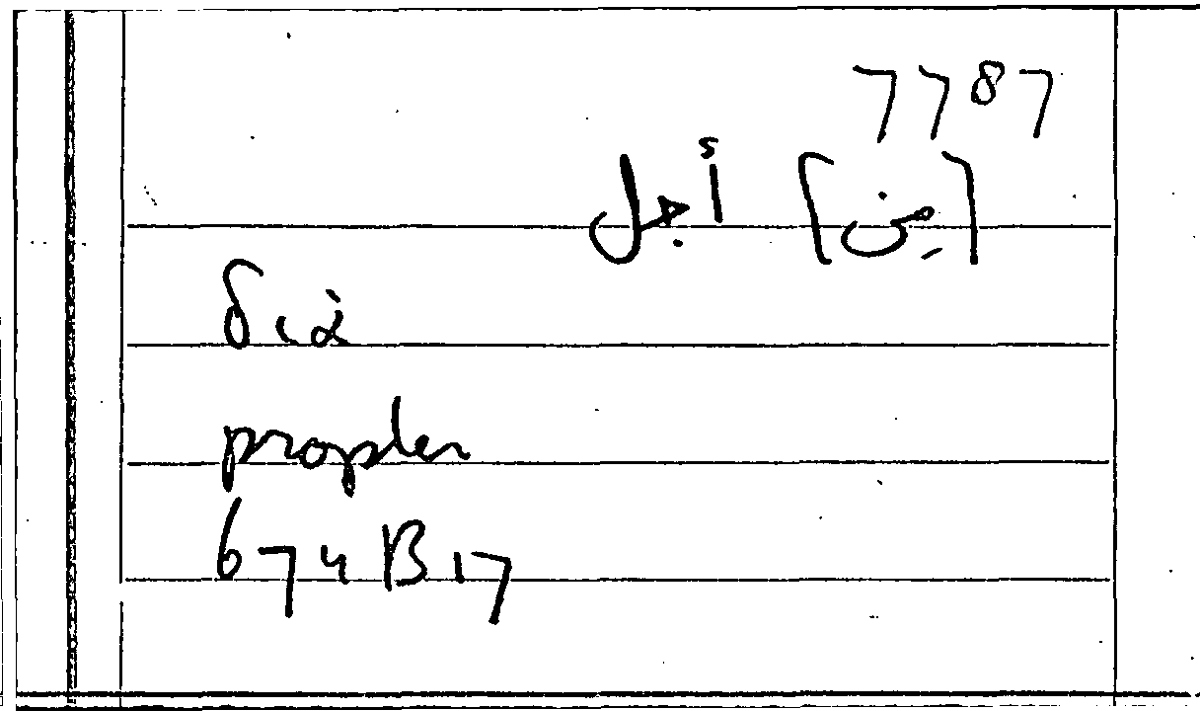 7787
[من] أجل
διὰ
propter
674 B 17